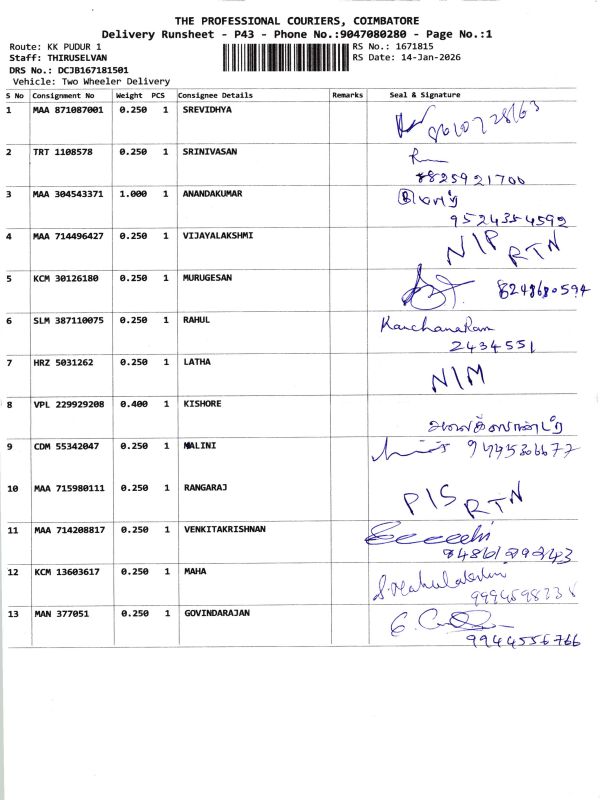 THE PROFESSIONAL COURIERS, COIMBATORE
Delivery Runsheet - P43 - Phone No.:9047080280 - Page No.:1
Route: KK PUDUR 1 RS No.: 1671815
Staff: THIRUSELVAN RS Date: 14-Jan-2026
DRS No.: DCJB167181501
Vehicle: Two Wheeler Delivery
S No Consignment No Weight PCS Consignee Details Remarks Seal & Signature
1 MAA 871087001 0.250 1 SREVIDHYA
2 TRT 1108578 0.250 1 SRINIVASAN
8825921700
3 MAA 304543371 1.000 1 ANANDAKUMAR
9524354592
4 MAA 714496427 0.250 1 VIJAYALAKSHMI NIP RTN
5 KCM 30126180 0.250 1 MURUGESAN
6 SLM 387110075 0.250 1 RAHUL
2434551
7 HRZ 5031262 0.250 1 LATHA NIM
8 VPL 229929208 0.400 1 KISHORE
9 CDM 55342047 0.250 1 MALINI
10 MAA 715980111 0.250 1 RANGARAJ PIS RTN
11 MAA 714208817 0.250 1 VENKITAKRISHNAN
12 KCM 13603617 0.250 1 MAHA
13 MAN 377051 0.250 1 GOVINDARAJAN
9944556766